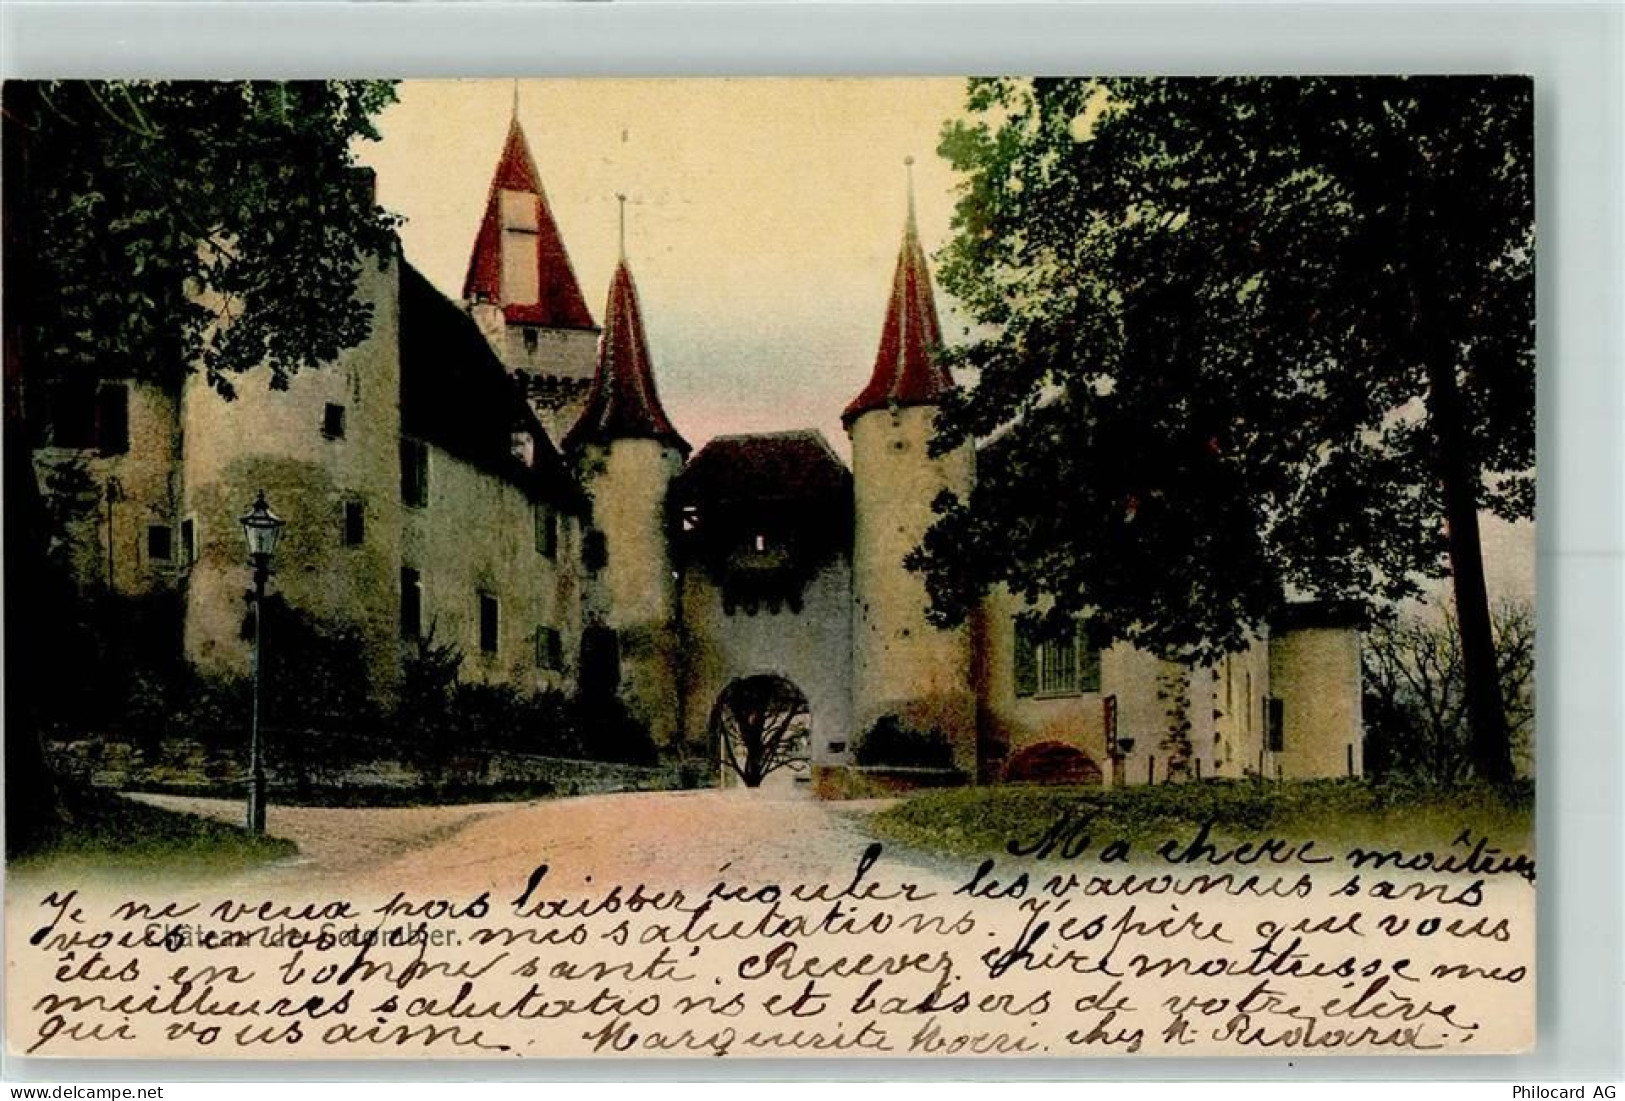 Ma chere maîtresse
Je ne veux pas laisser écouler les vacances sans
vous envoyez mes salutations. J'espère que vous
Château de Colombier.
êtes en bonne santé. Recevez chère maîtresse mes
meilleures salutations et baisers de votre élève
qui vous aime. Marguerite chez
Philocard AG